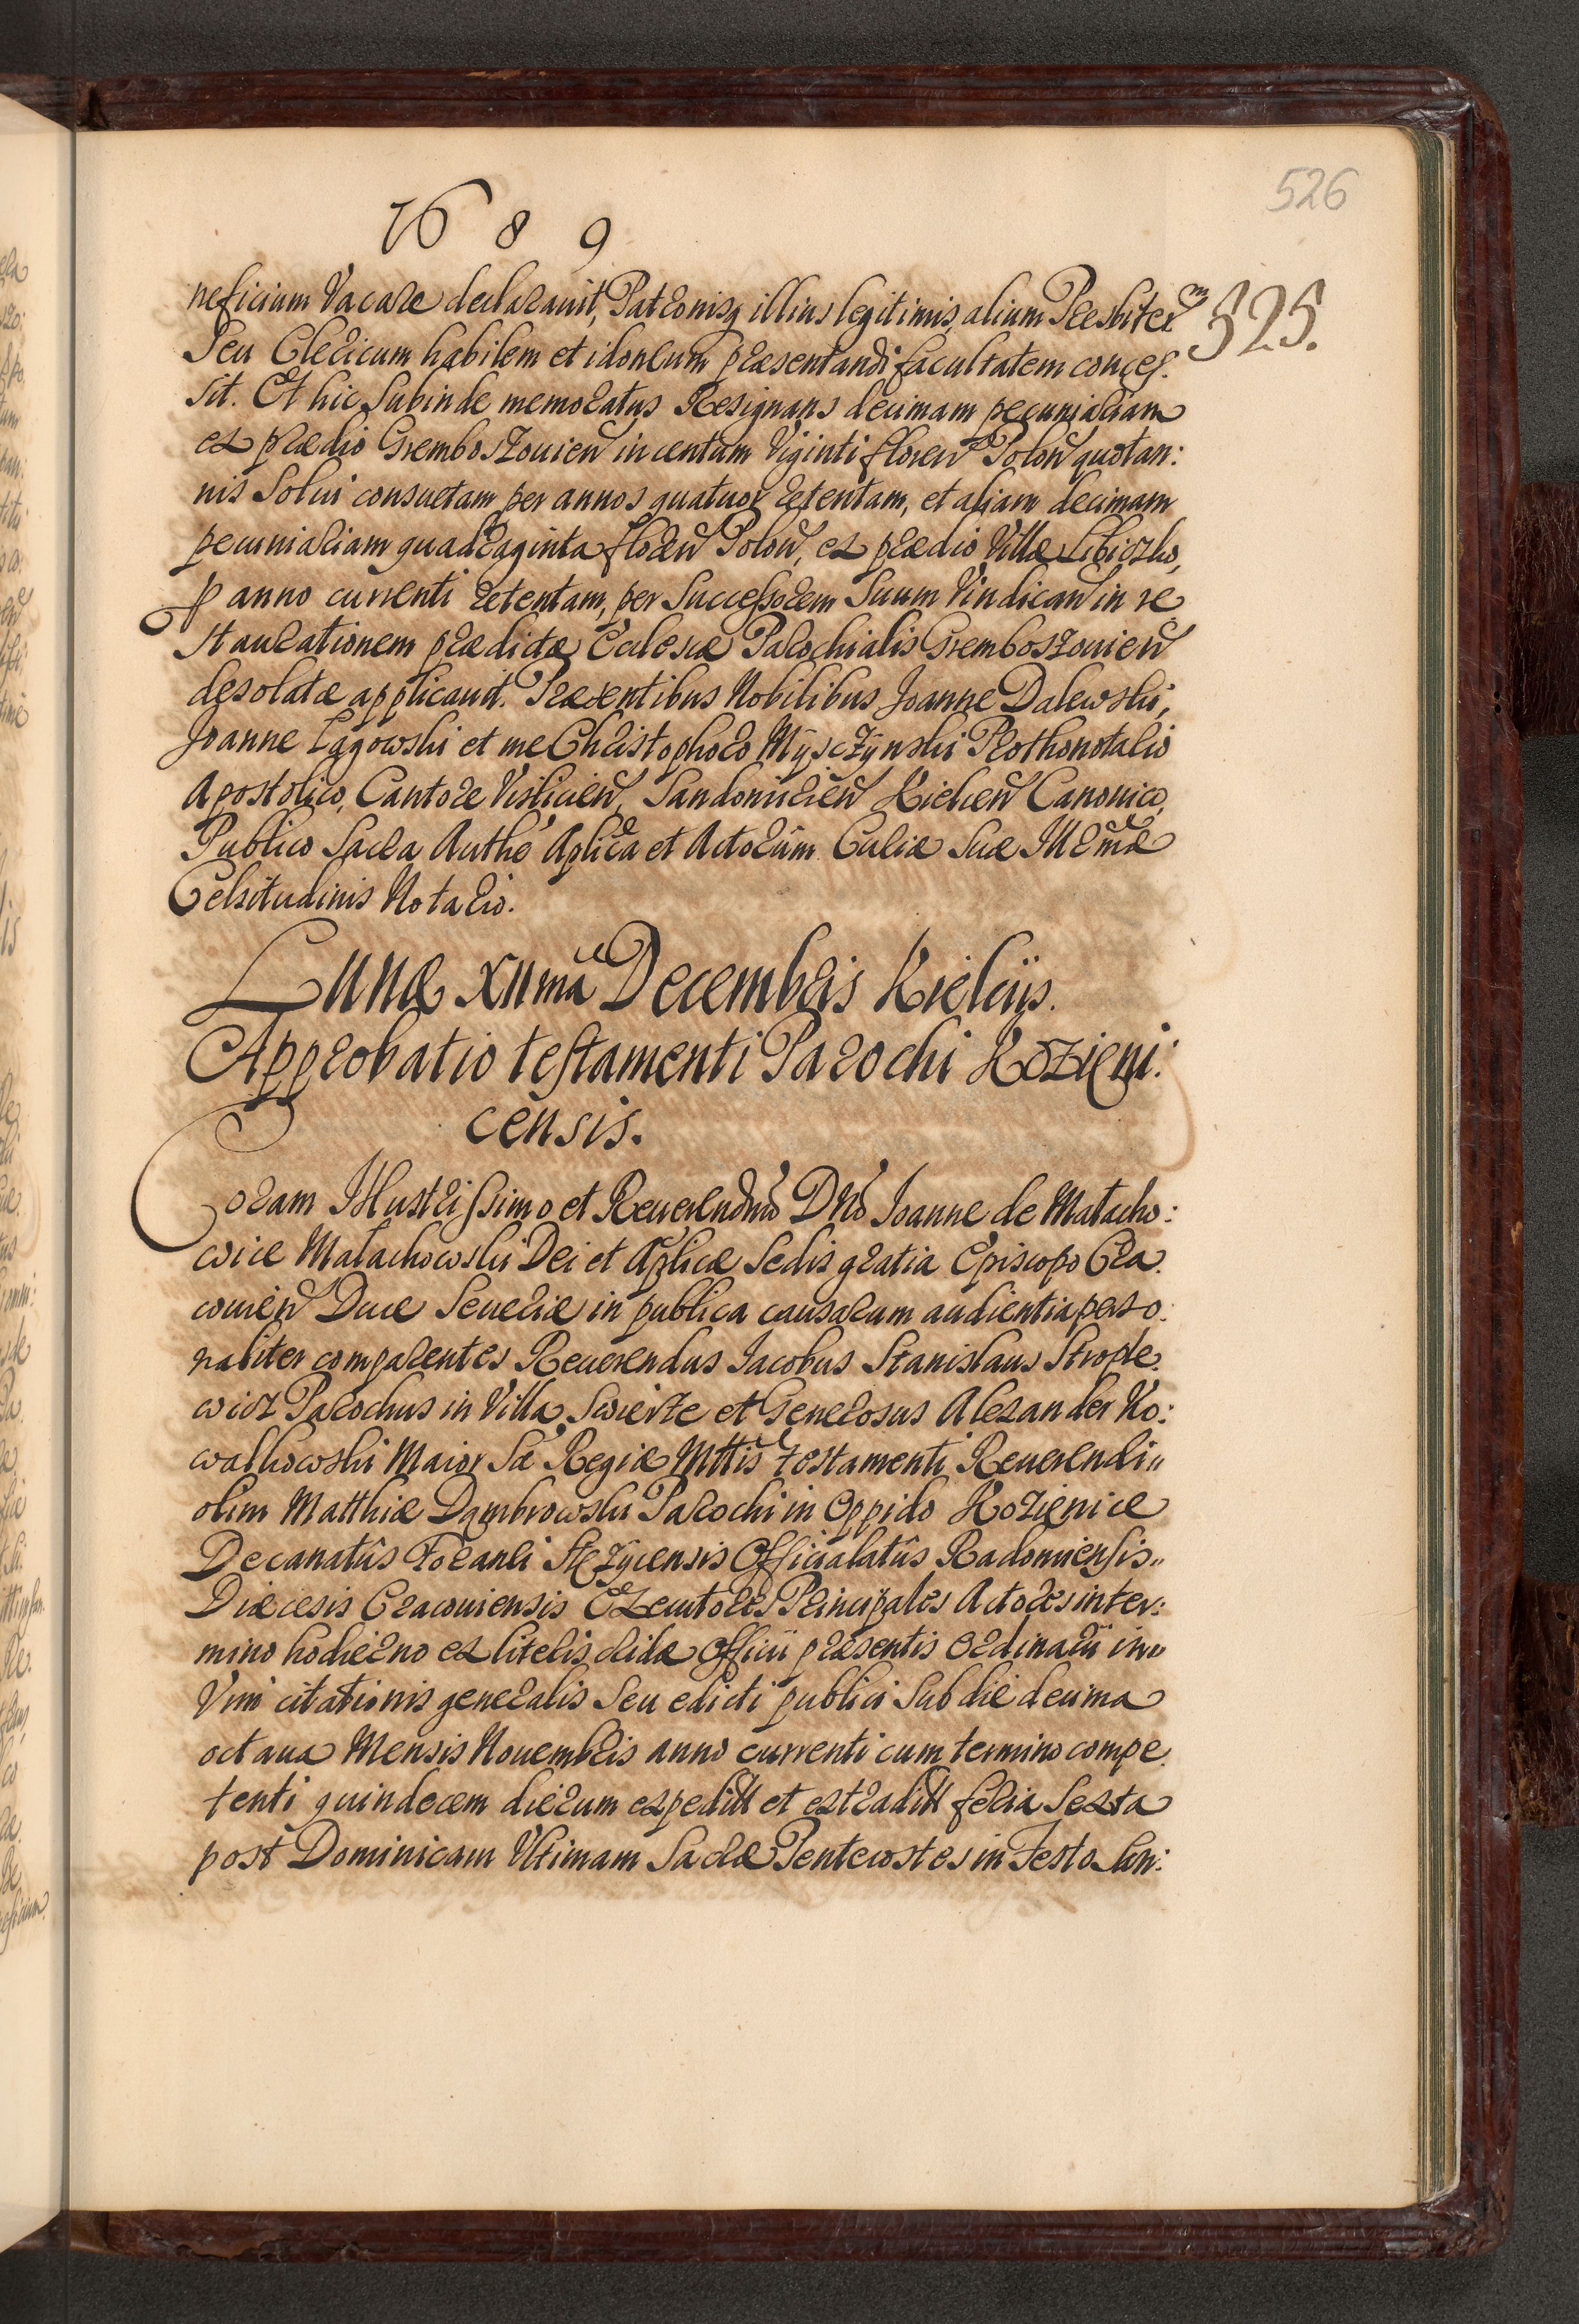 526
1689
525.
neficium Vacare declarauit, Patronisq illius legitimis, alium Presbiter̃m
Seu Clericum habilem et idoneum præsentandi facultatem conces:
sit. Et hic Subinde memoratus Resignans decimam pecuniariam
ex prædio Grembosżouien̄ in centum Viginti floren̄ Polon̄ quotan:
nis Solui consuetam per annos quatuor retentam, et aliam decimam
pecuniariam quadraginta floren̄ Polon̄, ex prædio Villæ Libiszko,
p anno currenti retentam, per Successorem Suum Vindican̄ in re
staurationem prædictæ Ecclesiæ Parochialis Grembosżouien̄
desolatæ applicauit. Præsentibus Nobilibus Joanne Dalewski,
Joanne Łągowski et me Christophoro Mysczynski Prothonotario
Apostolico, Cantore Visliciен̄, Sandomirien̄ Kielcen̄ Canonico,
Publico Sacra Auth̄e Aplica et Actorum Curiæ Suæ Illrmæ
Celsitudinis Notario.
Lunæ XIImã Decembris Kielciis.
Approbatio testamenti Parochi Kozieni:
censis.
Coram Illustrissimo et Reuerendmo Dno Joanne de Małacho:
wice Małachowski Dei et Aplicæ Sedis gratia Episcopo Cra:
couien̄ Duce Seueriæ in publica causarum audientia perso:
naliter comparentes Reuerendus Jacobus Stanislaus
wicz Parochus in Villa Swierże et Generosus Alexander Ko:
walkowski Maior Sæ Regiæ Mttis testamenti Reuerendi
olim Matthiæ Dąmbrowski Parochi in Oppido Kozienice
Decanatûs Foranei Stęzycensis Officialatûs Radomiensis
Diæcesis Cracouiensis Exeutores Principales Actores in ter:
mino hodierno ex literis officii præsentis Ordinarii in
Vim citationis generalis Seu edicti publici Sub die decima
octaua Mensis Nouembris anno currenti cum termino compe
tenti quindecem dierum expedit et extradit feria Sexta
post Dominicam Vltimam Sacræ Pentecostes in Festo San: